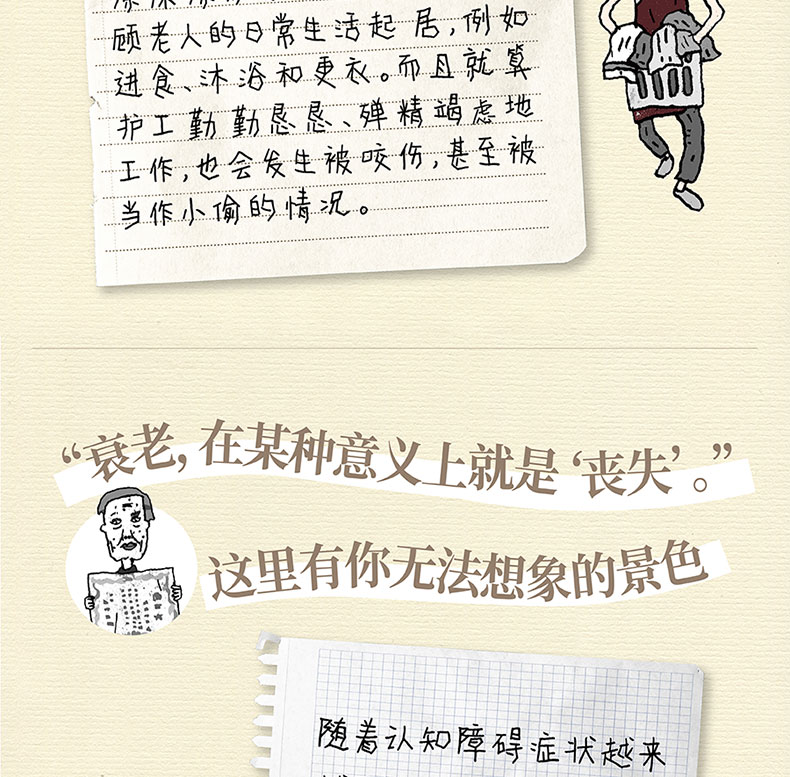 顾老人的日常生活起居,例如
进食、沐浴和更衣。而且就算
护工勤勤恳恳、殚精竭虑地
工作,也会发生被咬伤,甚至被
当作小偷的情况。
“衰老,在某种意义上就是‘丧失’。”
这里有你无法想象的景色
随着认知障碍症状越来